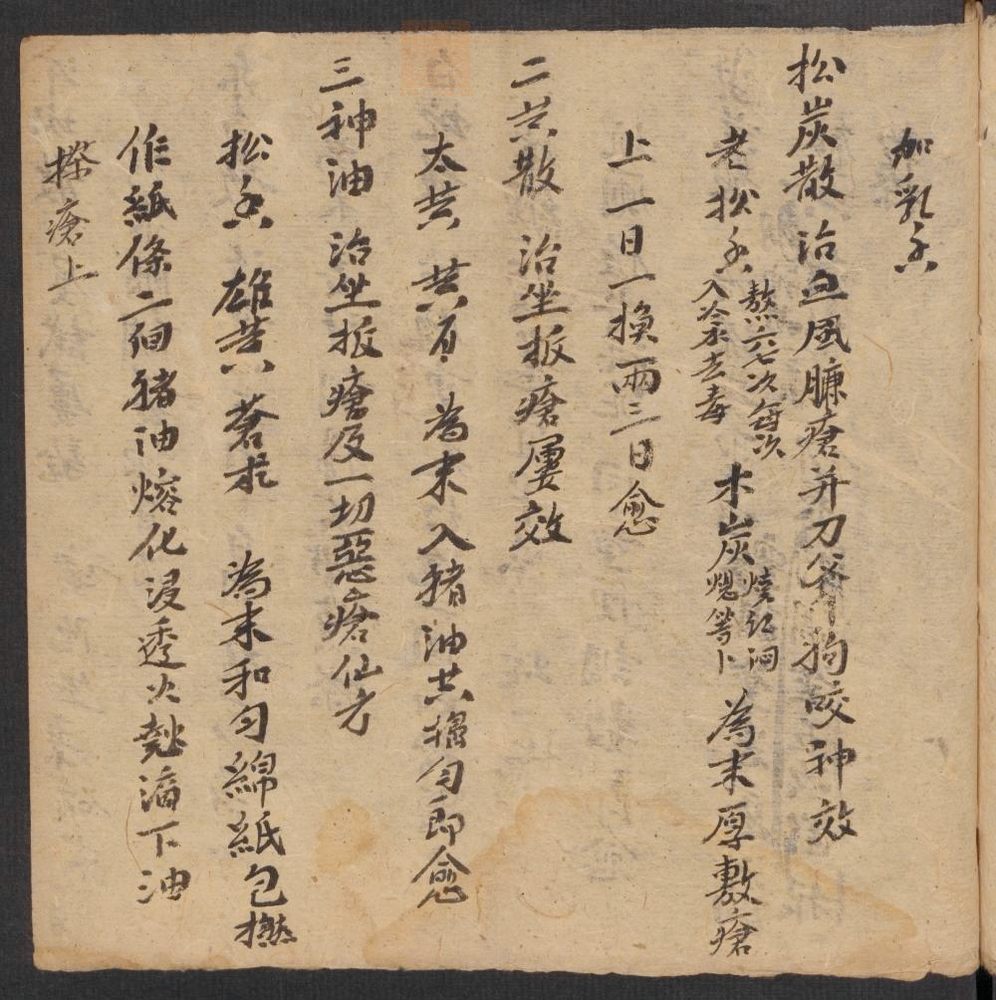 加乳香
松炭散 治血風臁瘡并刀斧狗咬神效
老松香 熬六七次每次入冷水去毒 木炭 燒紅 為末厚敷瘡
上一日一換兩三日愈
二黃散 治坐板瘡屢效
大黃 黃 為末入豬油共搗勻即愈
三神油 治坐板瘡及一切惡瘡仙方
松香 雄黃 蒼朮 為末和勻綿紙包撚
作紙條二個豬油熔化浸透火 滴下油
搽瘡上